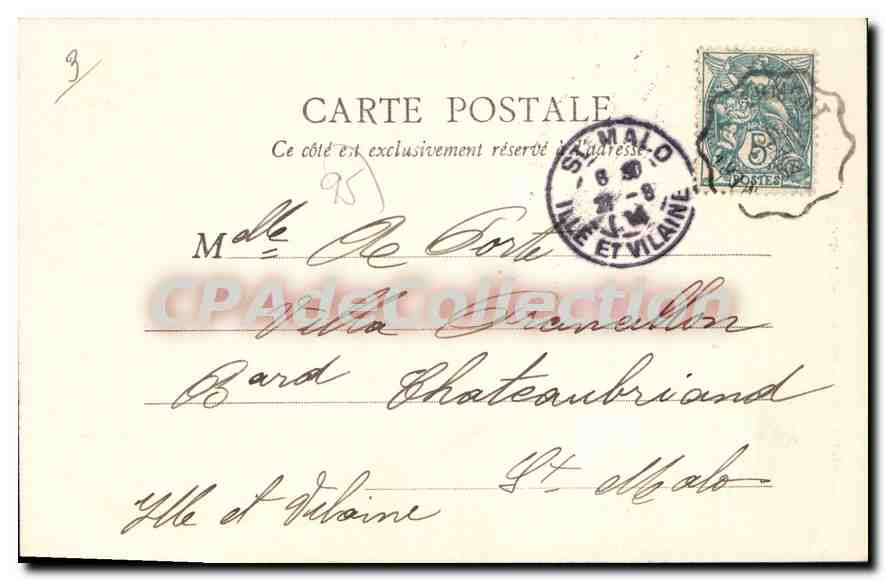 3
CARTE POSTALE
Ce côté est exclusivement réservé à l'adresse
95)
ST MALO
6 30
ILLE ET VILAINE
5
POSTES
Melle De Porte
CPAdeCollection
Villa
Bard Chateaubriand
St Malo
Ille et Vilaine